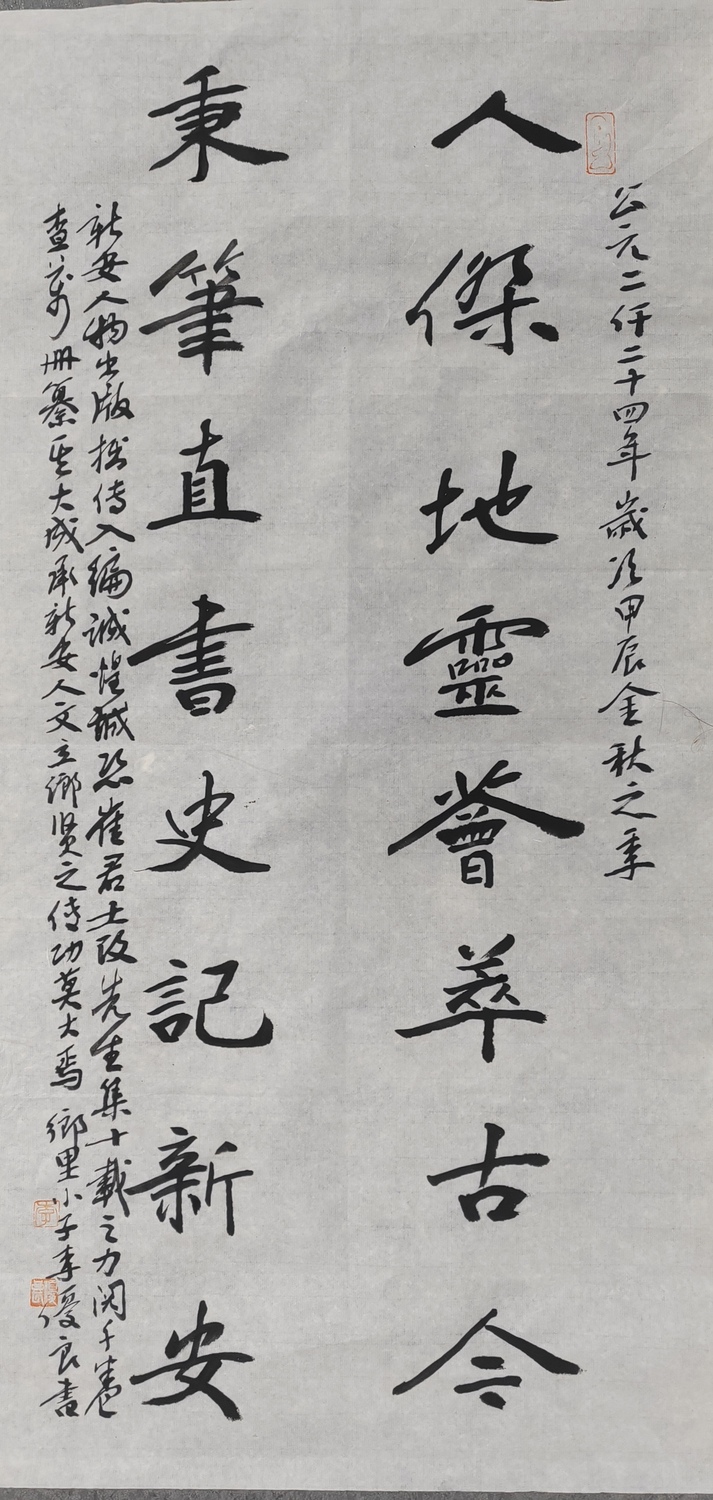 公元二仟二十四年歲次甲辰金秋之季
人傑地靈薈萃古今
秉筆直書史記新安
新安人物出版拙傳入編誠惶誠恐崔君士段先生集十載之力閱千卷
查萬册纂其大成承新安人文立鄉贤之傳功莫大焉 鄉里小子李優良書